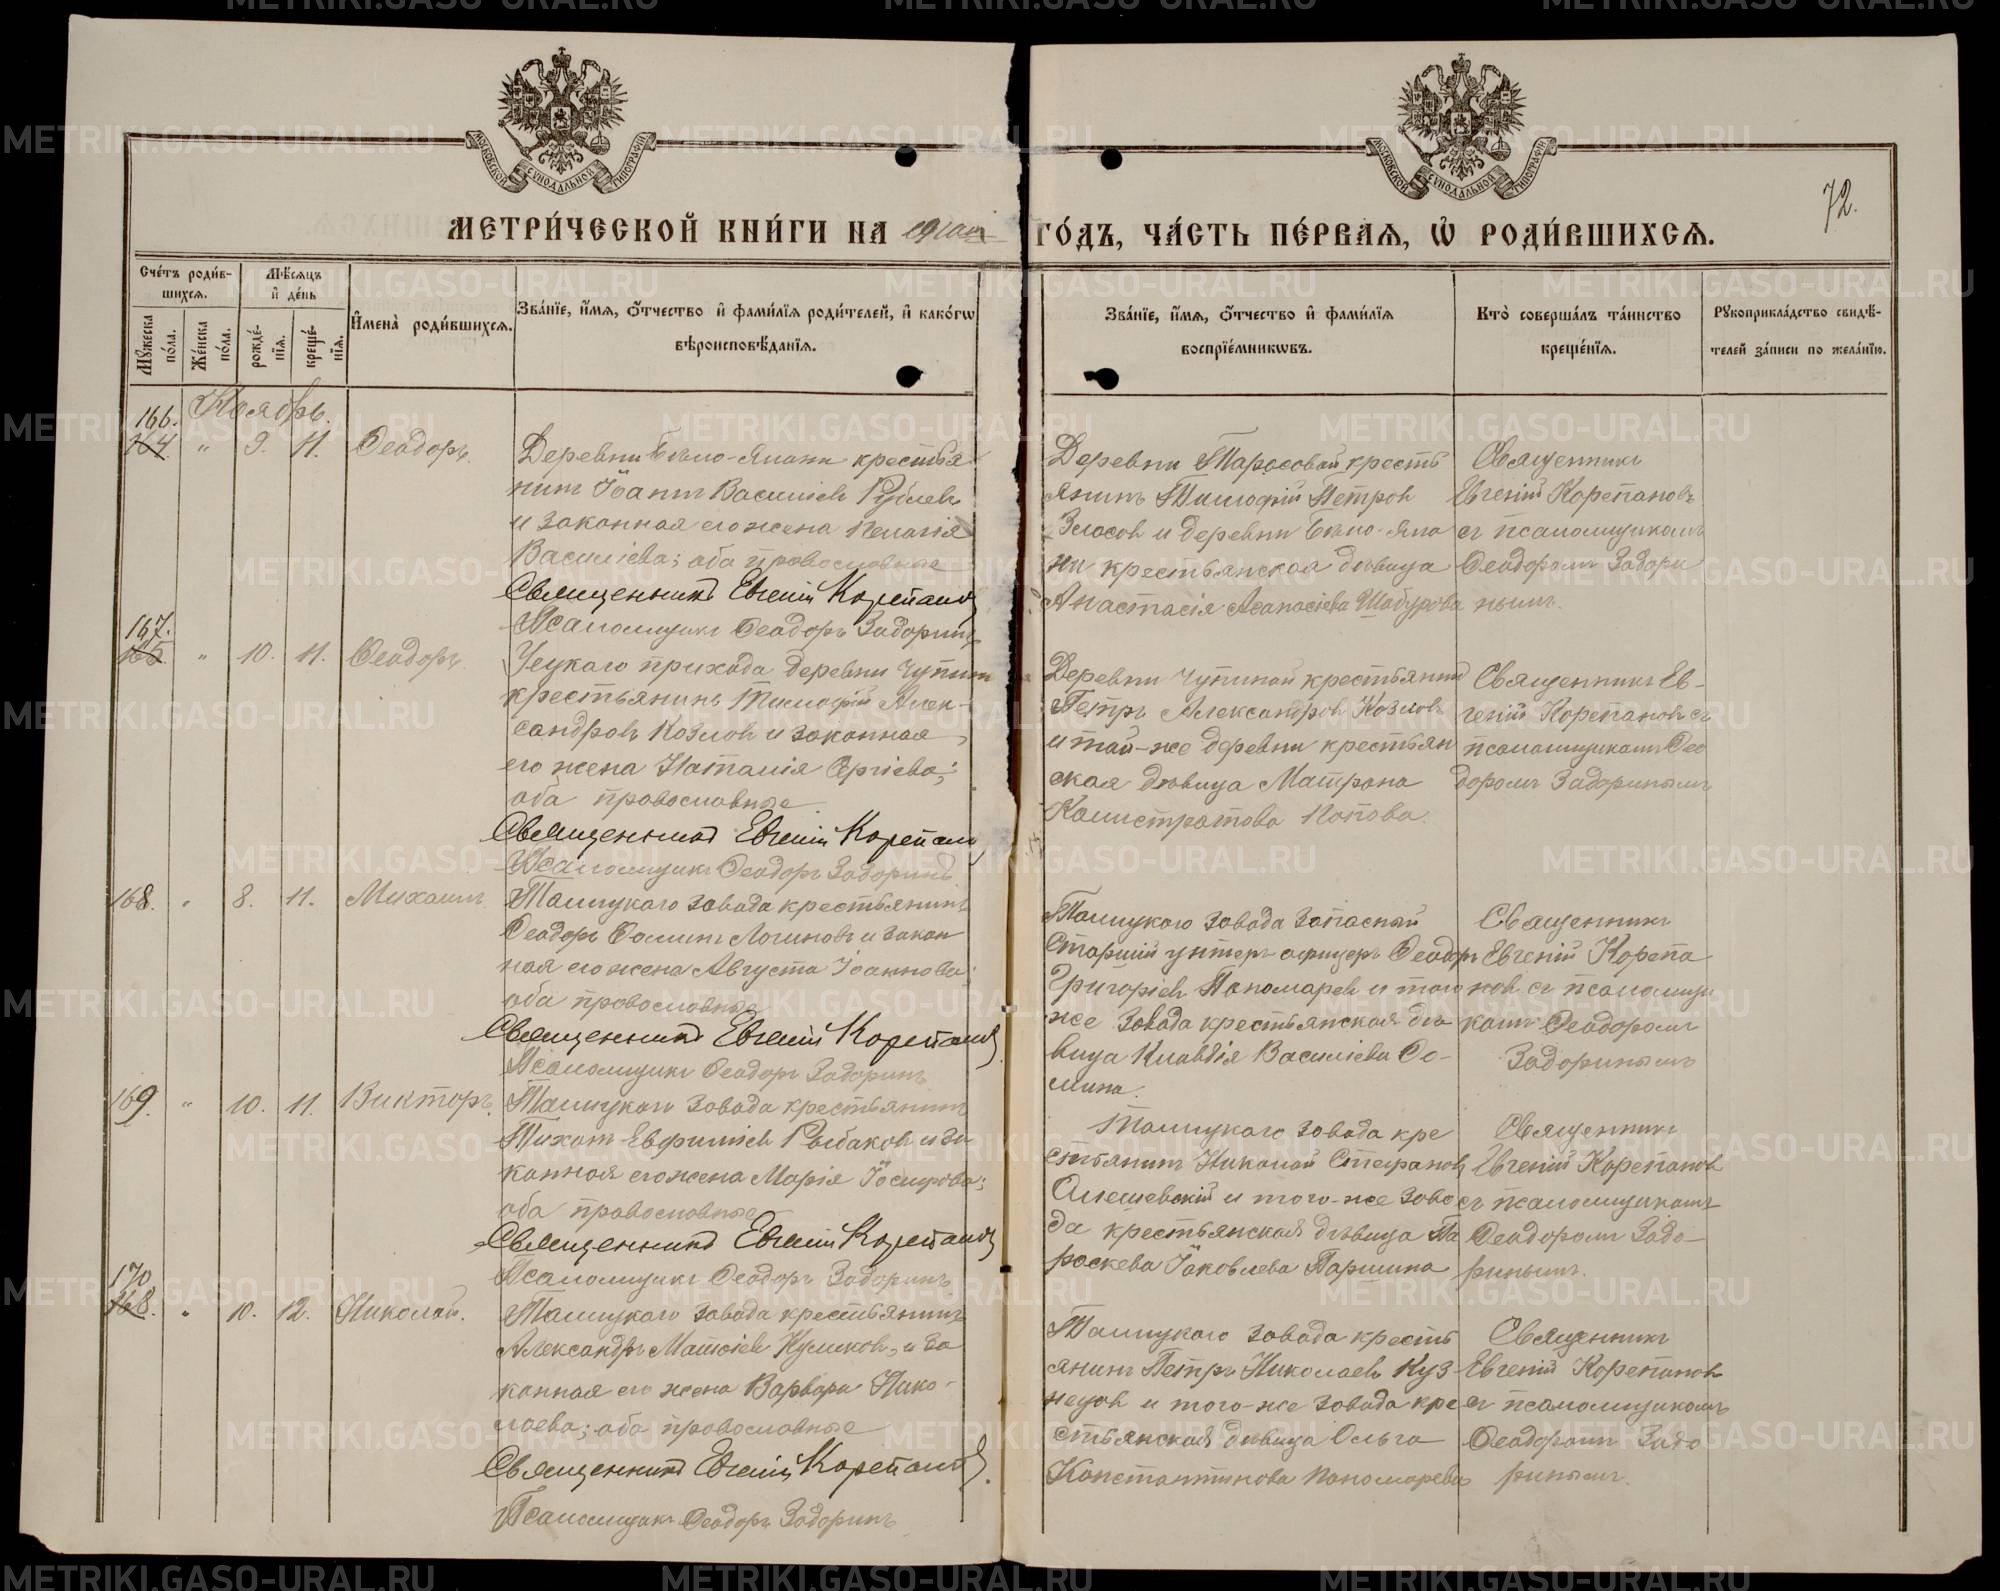 МЕТРИ́ЧЕСКОЙ КНИ́ГИ НА ГО́ДЪ, ЧА́СТЬ ПЕ́РВАѦ, Ѡ҆ РОДИ́ВШИХСѦ.
72.
Сче́тъ роди́в-
шихсѧ.
Мѣ́сѧцъ
и҆ де́нь
И҆мена̀ роди́вшихсѧ.
Зва́нїе, и҆́мѧ, ѻ҆́тчество и҆ фами́лїѧ роди́телей, и҆ како́гѡ
вѣроисповѣ́данїѧ.
Мꙋ́жеска
по́ла.
Же́нска
по́ла.
рожде́-
нїѧ.
креще́-
нїѧ.
Зва́нїе, и҆́мѧ, ѻ҆́тчество и҆ фами́лїѧ
воспрїе́мникѡвъ.
Кто̀ соверша́лъ та́инство
креще́нїѧ.
Рꙋкоприкла́дство свидѣ́-
телей за́писи по жела́нїю.
Ноябрь.
166.
164. " 9. 11. Ѳеодоръ.
Деревни Бѣло-Япани крестья
нинъ Іоаннъ Василіевъ Рублевъ
и законная его жена Пелагія
Василіева; оба православные
Священникъ Евгеній Корепановъ
Псаломщикъ Ѳеодоръ Задоринъ
Деревни Тарасовой кресть
янинъ Тимофій Петровъ
и деревни Бѣло-Япа
ни крестьянская дѣвица
Анастасія Аѳанасіева Шабурова
Священникъ
Евгеній Корепановъ
съ псаломщикомъ
Ѳеодоромъ Задори
нымъ.
167.
165. " 10. 11. Ѳеодоръ.
Уецкаго прихода деревни Чупин
крестьянинъ Тимофій Алек-
сандровъ Козловъ и законная
его жена Наталія Сергіева;
оба православные
Священникъ Евгеній Корепановъ
Псаломщикъ Ѳеодоръ Задоринъ
Деревни Чупиной крестьянинъ
Петръ Александровъ Козловъ
и той-же деревни крестьян
ская дѣвица Матрона
Калистратова Попова.
Священникъ Ев-
геній Корепановъ съ
псаломщикомъ Ѳео
доромъ Задоринымъ
168. " 8. 11. Михаилъ.
Талицкаго завода крестьянинъ
Ѳеодоръ Ѳоминъ Логиновъ и закон
ная его жена Августа Іоаннова;
оба православные
Священникъ Евгеній Корепановъ
Псаломщикъ Ѳеодоръ Задоринъ
Талицкаго завода запасный
старшій унтеръ офицеръ Ѳеодоръ
Григорієвъ Пономаревъ и того
же завода крестьянская дѣ
вица Клавдія Василіева Ѳо-
мина.
Священникъ
Евгеній Корепа
новъ съ псаломщи
комъ Ѳеодоромъ
Задоринымъ
169. " 10. 11. Викторъ.
Талицкаго завода крестьянинъ
Тихонъ Евфиміевъ Рыбаковъ и за
конная его жена Марія Іосифова;
оба православные
Священникъ Евгеній Корепановъ
Псаломщикъ Ѳеодоръ Задоринъ
Талицкаго завода кре
стьянинъ Николай Стефановъ
Олешевскій и того-же заво
да крестьянская дѣвица Па
раскева Іаковлева Паршина
Священникъ
Евгеній Корепановъ
съ псаломщикомъ
Ѳеодоромъ Задо-
ринымъ.
170
168. " 10. 12. Николай.
Талицкаго завода крестьянинъ
Александръ Матѳіевъ Куликовъ, и за
конная его жена Варвара Нико-
лаева; оба православные
Священникъ Евгеній Корепановъ.
Псаломщикъ Ѳеодоръ Задоринъ
Талицкаго завода кресть
янинъ Петръ Николаевъ Куз-
нецовъ и того-же завода кре
стьянская дѣвица Ольга
Константинова Пономарева
Священникъ
Евгеній Корепановъ
съ псаломщикомъ
Ѳеодоромъ Задо
ринымъ.